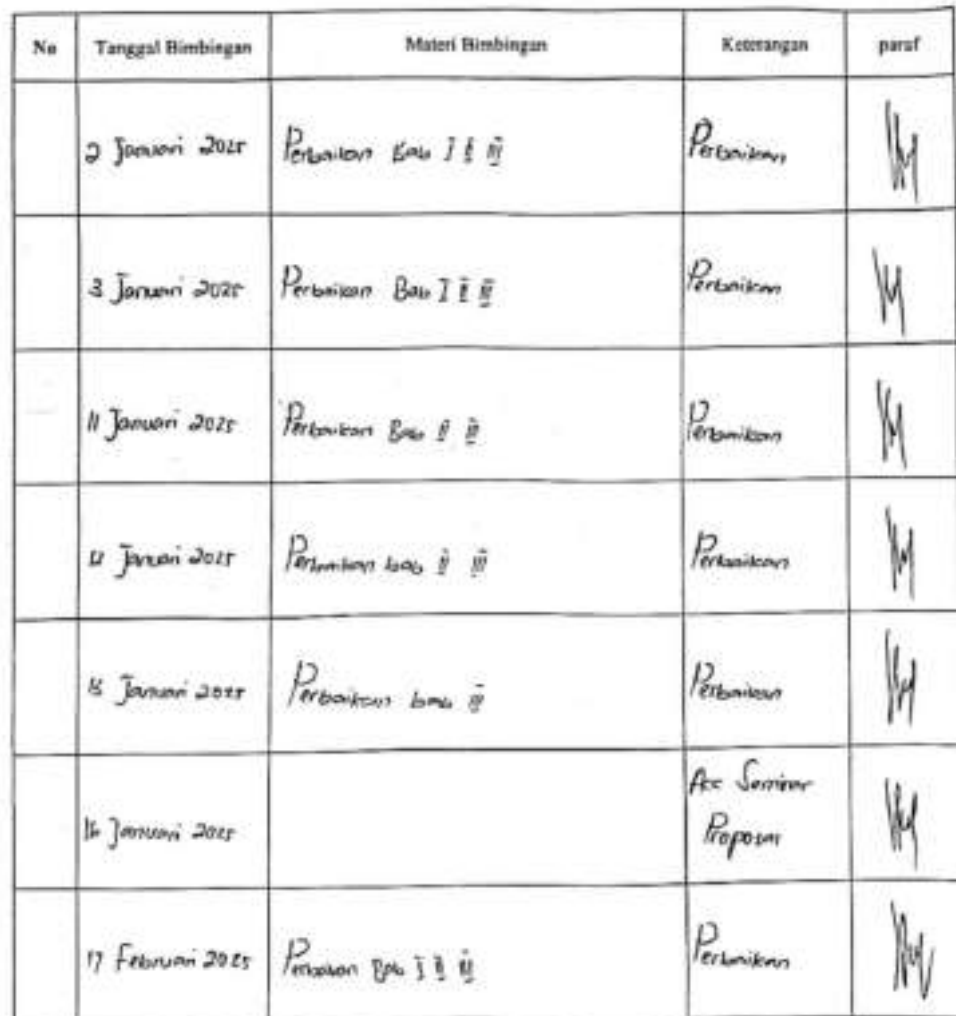 No Tanggal Bimbingan Materi Bimbingan Keterangan paraf
2 Januari 2025 Perbaikan Bab I II III Perbaikan
3 Januari 2025 Perbaikan Bab I II III Perbaikan
11 Januari 2025 Perbaikan Bab II III Perbaikan
Januari 2025 Perbaikan bab II III Perbaikan
15 Januari 2025 Perbaikan bab III Perbaikan
16 Januari 2025 Acc Seminar
Proposal
17 Februari 2025 Perbaikan Bab I II III Perbaikan